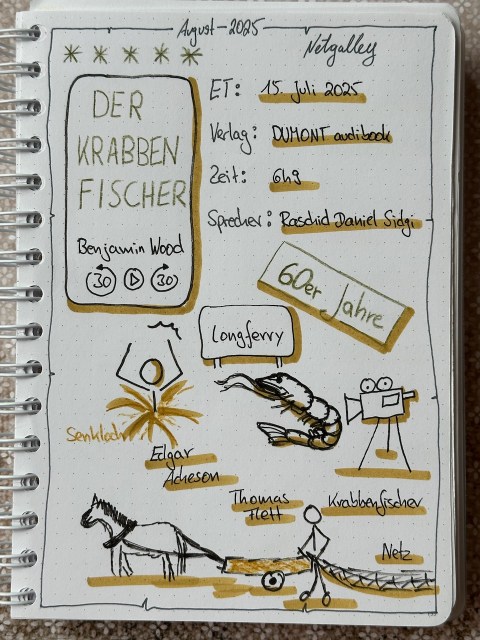 August - 2025
Netgalley
DER
KRABBEN
FISCHER
Benjamin Wood
30
30
ET: 15. Juli 2025
Verlag: DUMONT audiobook
Zeit: 6h9
Sprecher: Raschid Daniel Sidgi
60er Jahre
Longferry
Senkloch
Edgar
Acheson
Thomas
Flett
Krabbenfischer
Netz